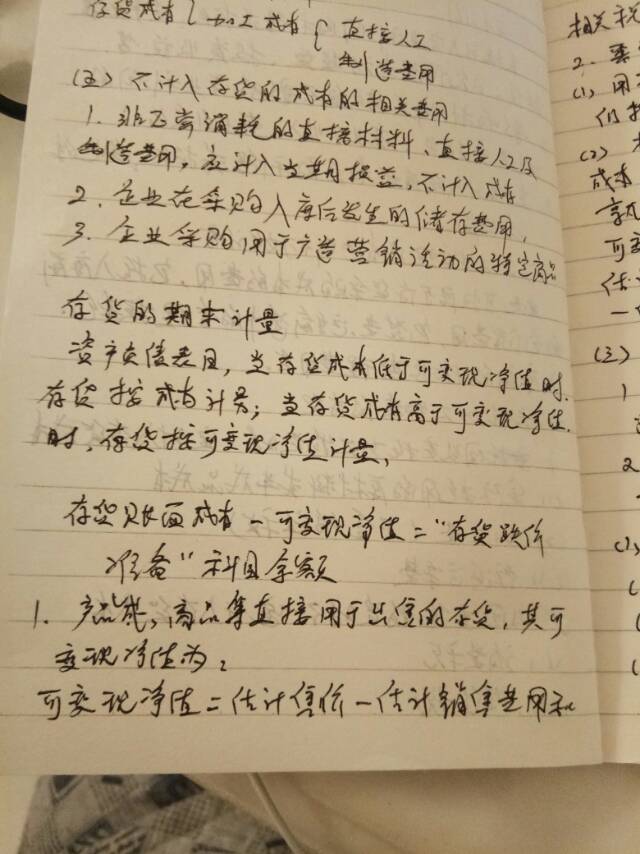 存货成本{加工成本{直接人工
制造费用
(五)不计入存货的成本的相关费用
1.非正常消耗的直接材料、直接人工及
制造费用,应计入当期损益,不计入成本
2.企业在采购入库后发生的储存费用,
3.企业采购用于广告营销活动的特定商品
存货的期末计量
资产负债表日,当存货成本低于可变现净值时.
存货按成本计量;当存货成本高于可变现净值.
时,存货按可变现净值计量,
存货账面成本-可变现净值="存货跌价
准备"科目余额
1.产品成,商品等直接用于出售的存货,其可
变现净值为:
可变现净值=估计售价-估计销售费用和
相关税
2.
(1)用
(2)
成本
可变
估计
(三)
1
2
(1)